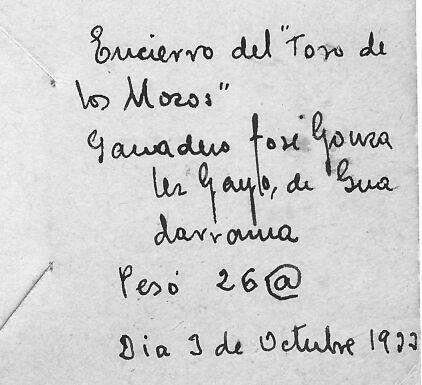 Encierro del "Toro de
los Mozos"
Ganadero José Gonza
lez de Gua
darrama
Pesó 26@
Dia 3 de Octubre